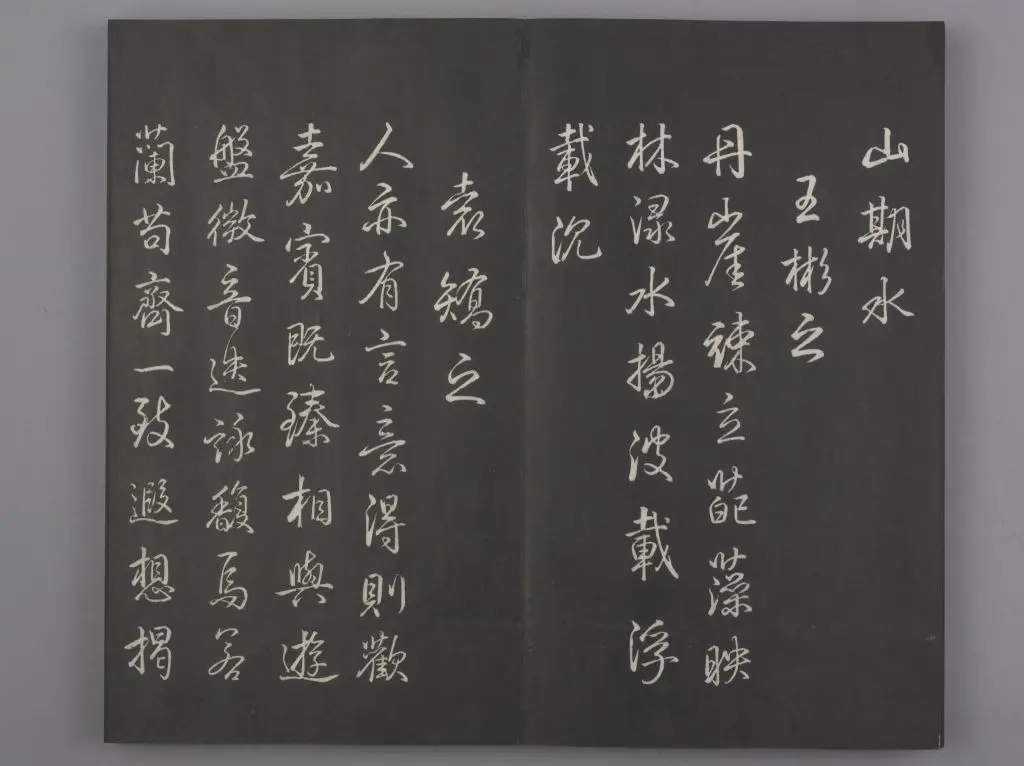 山期水
王彬之
丹崖竦立葩藻映
林渌水揚波載浮
載沉
袁矯之
人亦有言意得則歡
嘉賓既臻相與遊
盤微音迭詠馥焉若
蘭苟齊一致遐想揭